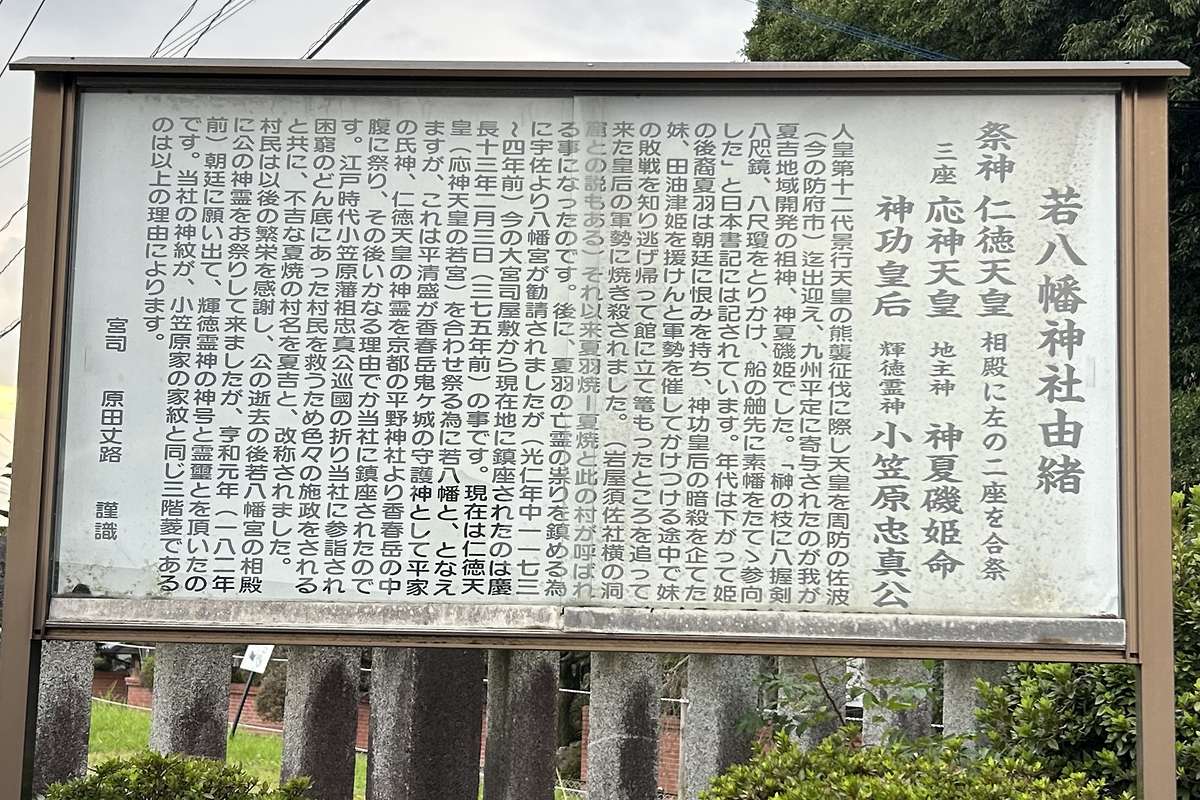 若八幡神社由緒
祭神 仁徳天皇 相殿に左の二座を合祭
三座 応神天皇 地主神 神夏磯姫命
神功皇后 輝徳霊神 小笠原忠真公
人皇第十二代景行天皇の熊襲征伐に際し天皇を周防の佐波
(今の防府市)迄出迎え、九州平定に寄与されたのが我が
夏吉地域開発の祖神、神夏磯姫でした。「榊の枝に八握剣
八咫鏡、八尺瓊をとりかけ、船の舳先に素幡をたてゝ参向
した」と日本書記には記されています。年代は下がって姫
の後裔夏羽は朝廷に恨みを持ち、神功皇后の暗殺を企てた
妹、田油津姫を援けんと軍勢を催してかけつける途中で妹
の敗戦を知り逃げ帰って館に立て篭もったところを追って
来た皇后の軍勢に焼き殺されました。(岩屋須佐社横の洞
窟との説もある)それ以来夏羽焼ー夏焼と此の村が呼ばれ
る事になったのです。後に、夏羽の亡霊の祟りを鎮める為
に宇佐より八幡宮が勧請されましたが(光仁年中一一七三
〜四年前)今の大宮司屋敷から現在地に鎮座されたのは慶
長十三年二月三日(三七五年前)の事です。現在は仁徳天
皇(応神天皇の若宮)を合わせ祭る為に若八幡と、となえ
ますが、これは平清盛が香春岳鬼ヶ城の守護神として平家
の氏神、仁徳天皇の神霊を京都の平野神社より香春岳の中
腹に祭り、その後いかなる理由でか当社に鎮座されたので
す。江戸時代小笠原藩祖忠真公巡國の折り当社に参詣され
困窮のどん底にあった村民を救うため色々の施政をされる
と共に、不吉な夏焼の村名を夏吉と、改称されました。
村民は以後の繁栄を感謝し、公の逝去の後若八幡宮の相殿
に公の神霊をお祭りして来ましたが、享和元年(一八二年
前)朝廷に願い出て、輝徳霊神の神号と霊璽とを頂いたの
です。当社の神紋が、小笠原家の家紋と同じ三階菱である
のは以上の理由によります。
宮司 原田丈路 謹識